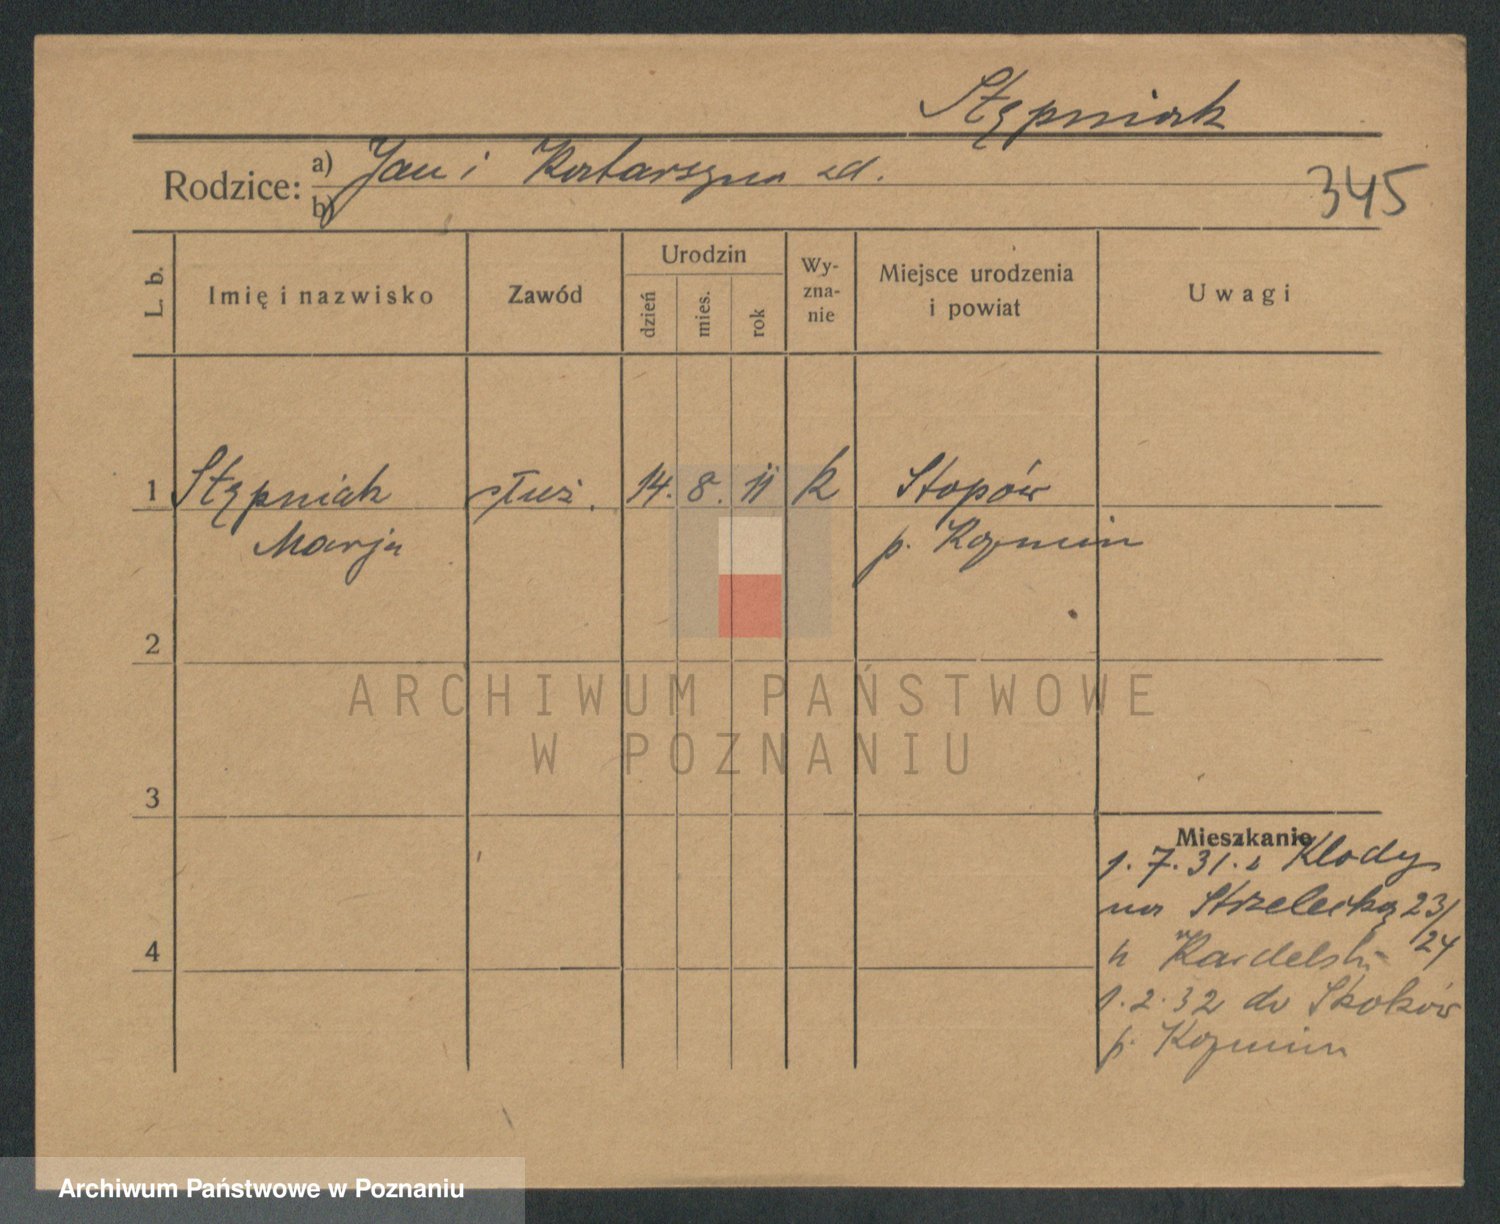 Stępniak
Rodzice: a) Jan i Katarzyna zd.
b)
345
L. b.
Imię i nazwisko
Zawód
Urodzin
dzień
mies.
rok
Wy-
zna-
nie
Miejsce urodzenia
i powiat
Uwagi
1 Stępniak służ. 14. 8. 11 k Stopów
Marja p. Kozmin
2
3
4
Mieszkanie
1. 7. 31. z Kłody
na Strzelecką 23/
24
1. 2. 32 do Skoków
p. Kozmin
ARCHIWUM PAŃSTWOWE
W POZNANIU
Archiwum Państwowe w Poznaniu